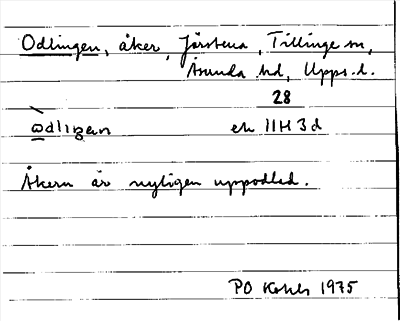 Odlingen, åker, Järstena, Tillinge sn,
Åsunda hd, Upps. l.
28
ek 11H 3d
Åkern är nyligen uppodlad.
PO 1975